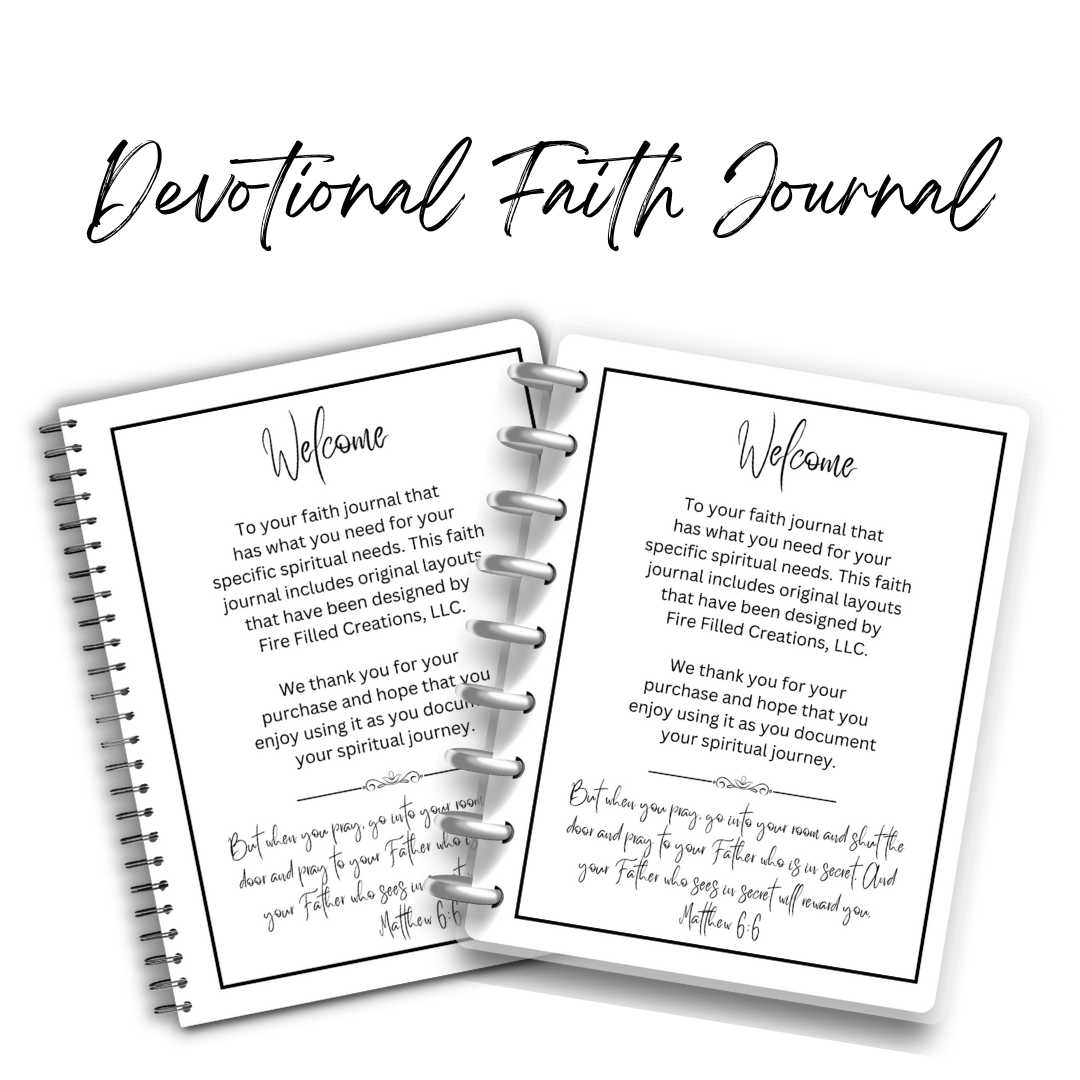 Devotional Faith Journal
Welcome
To your faith journal that
has what you need for your
specific spiritual needs. This faith
journal includes original layouts
that have been designed by
Fire Filled Creations, LLC.
We thank you for your
purchase and hope that you
enjoy using it as you docum
your spiritual journey.
But when you pray, go into your room
door and pray to your Father who is
your Father who sees in
Matthew 6:6
Welcome
To your faith journal that
has what you need for your
specific spiritual needs. This faith
journal includes original layouts
that have been designed by
Fire Filled Creations, LLC.
We thank you for your
purchase and hope that you
enjoy using it as you document
your spiritual journey.
But when you pray, go into your room and shut the
door and pray to your Father who is in secret. And
your Father who sees in secret will reward you.
Matthew 6:6